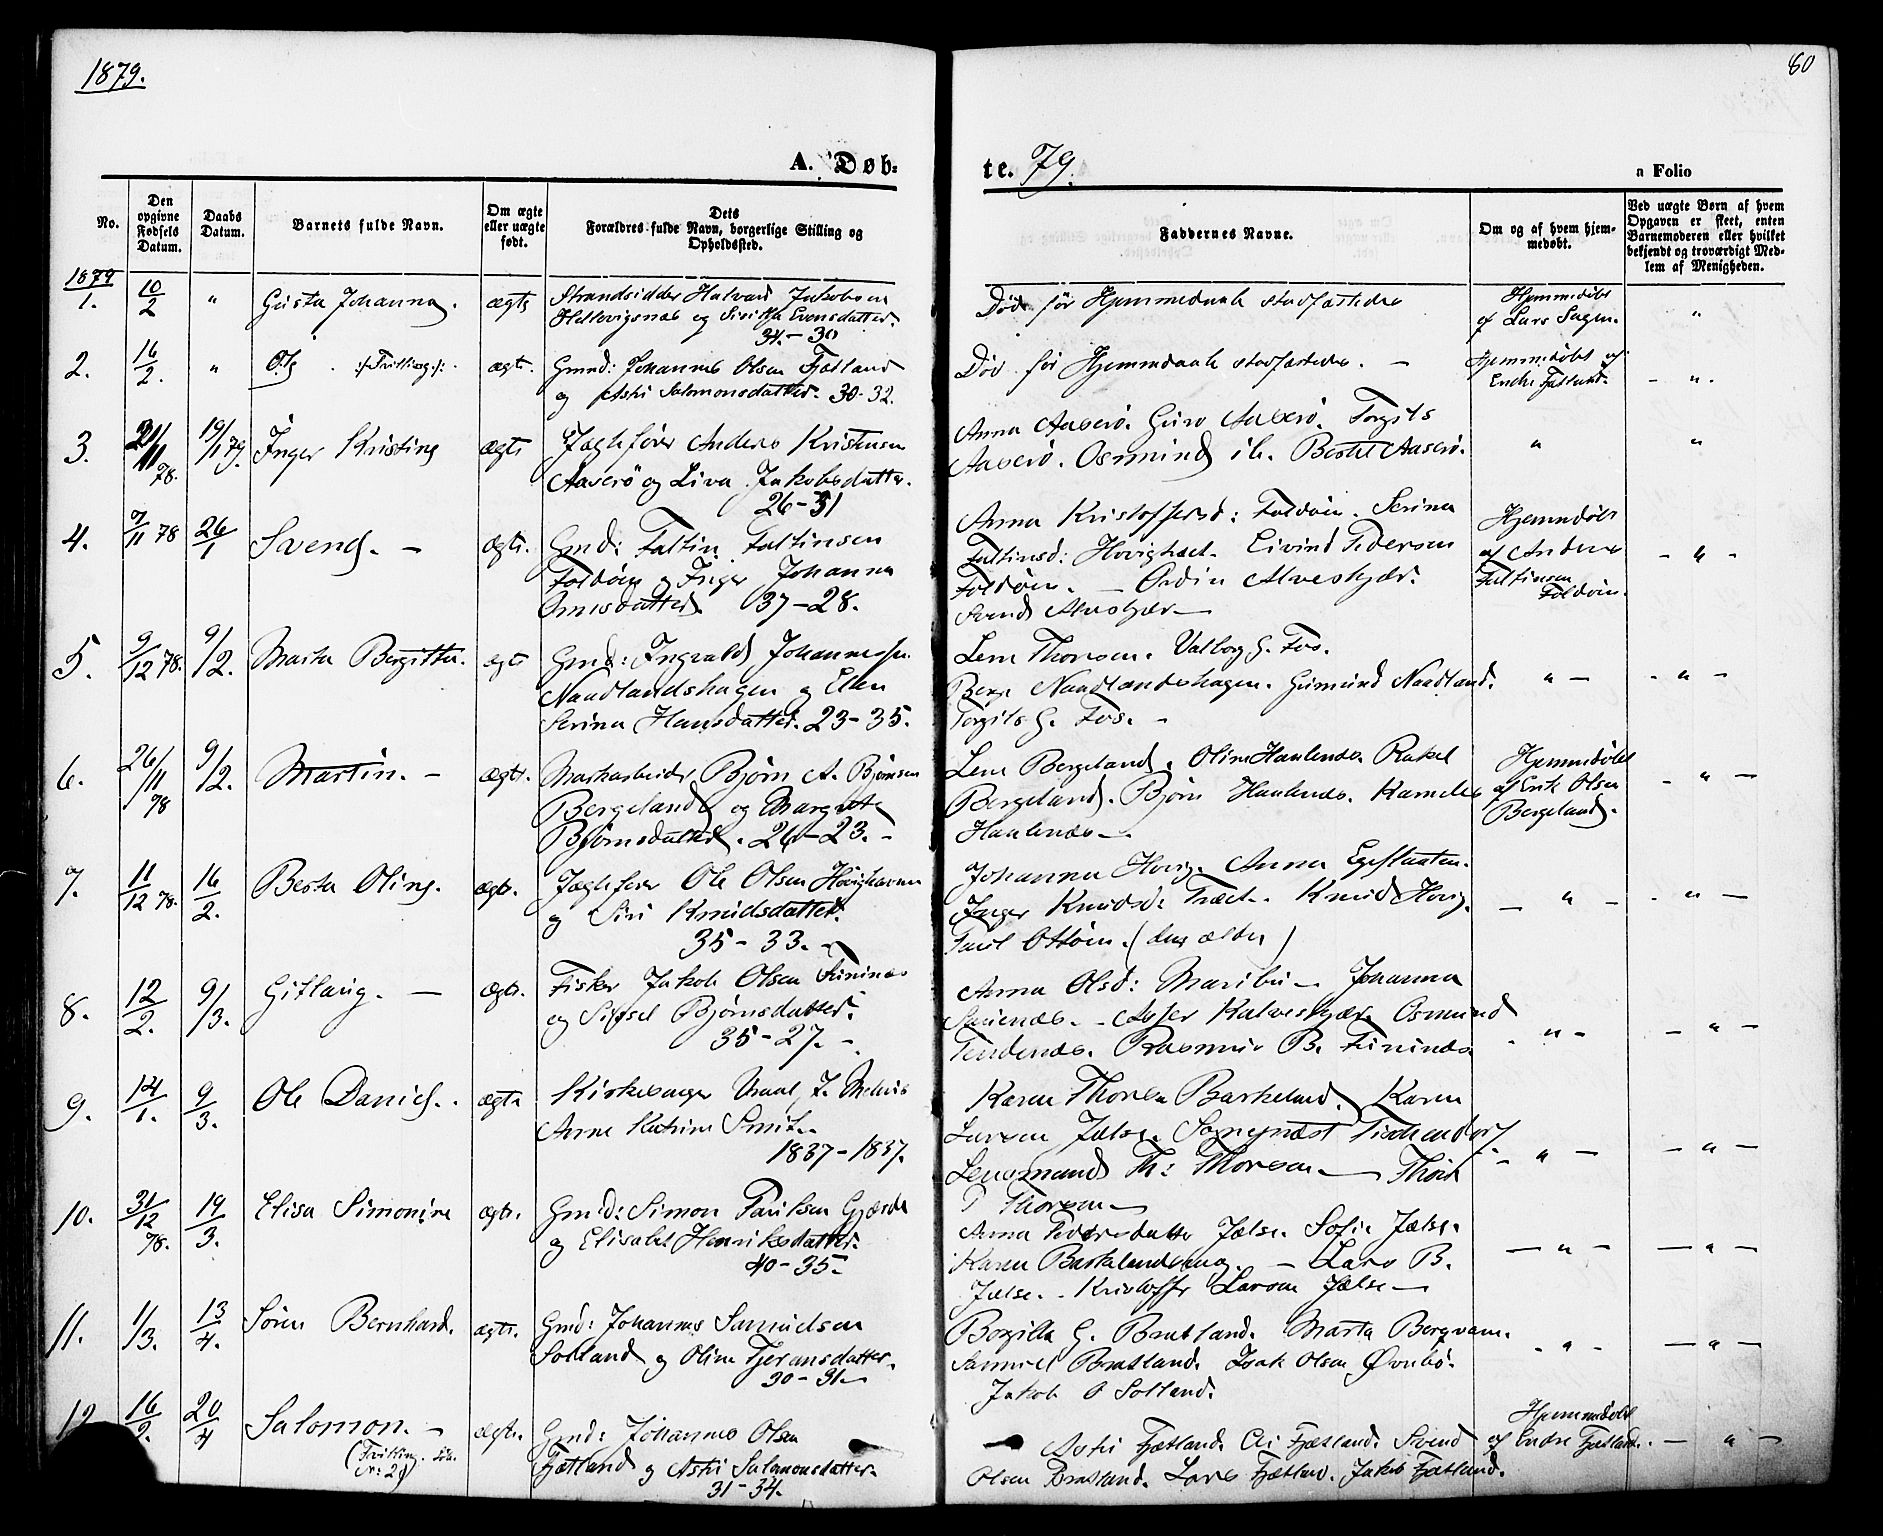 1879.
80
A. Døb-
te. 79.
n Folio
No.
Den opgivne Fødsels Datum.
Daabs Datum.
Barnets fulde Navn.
Om ægte eller uægte født.
Dets Forældres fulde Navn, borgerlige Stilling og Opholdssted.
Faddernes Navne.
Om og af hvem hjemmedøbt.
Ved uægte Børn af hvem Opgaven er skeet, enten Barnemoderen eller hvilket bekjendt og troværdigt Medlem af Menigheden.
1879
1. 10/2 " Gusta Johanna. ægte Strandsidder Halvard Jakobsen
Hellevigsnæs og Siritha Evensdatter.
34.-30
Død før Hjemmedaab stadfæstedes
Hjemmedøbt
af Lars Sagen. "
2. 16/2. " Ole :/Trilling:/: ægte. Gmd: Johannes Olsen Fjætland
og Astri Salomonsdatter. 30-32.
Død før Hjemmedaab stadfæstedes. -
Hjemmedøbt af
Endre Fjætland. - " .
3. 21/11 78. 19/1 79. Inger Kristine ægte Jægtefører Anders Kristensen
Aaserø og Liva Jakobsdatter.
26-31
Anna Aaserø. Guro Aaserø. Torgils
Aaserø. Osmund ib. Bertel Aaserø. " "
4. 7/11 78 26/1 Svend. - ægte. Gmd: Faltin Faltinsen
Foldøen og Inger Johanna
37-28.
Anna Kristoffersd: Foldøen. Serina
Faltinsd: Eivind Pedersen
Foldøen. - Alveskjær.
Svend Alveskjær -
Hjemmedøbt
af Anders
Faltinsen
Foldøen. - " -
5. 9/12 78. 9/2. Marta Bergitta. ægte Gmd: Ingvald Johannessen
Naadlandshagen og Elen
Serina Hansdatter. 23-35.
Lene Thorsen. Valborg G. Fos.
Berge Naadlandshagen. Gumund Naadland.
Torgils G. Fos. -
" - - " -
6. 26/11 78 9/2. Martin. - ægte. Bjørn A. Bjørnsen
Bergeland og Margrete
Bjørnsdatter. 26-23. -
Lene Bergeland. Oline Hanlenæs. Rakel
Bergeland. Bjørn Hanlenæs. Kanelis
Hanlenæs -
Hjemmedøbt
af Erik Olsen
Bergeland. - " -
7. 11/12 78. 16/2. Berta Oline. ægte. Jægtefører Ole Olsen
og Siri Knudsdatter.
35-33. -
Johanna Hovig. Anna
Inger Knudsd. Træet. Knud Hovig.
Paul Ottøen. (den ældre)
- " - - " -
8. 12/2. 9/3. Gitlaug. - ægte. Fisker Jakob Olsen
og Sissel Bjørnsdatter.
35-27. -
Anna Olsd: Maribu - Johanna
Sauenæs. - Asser Kalveskjær. Osmund
Rasmus B.
- " - - " -
9. 14/1. 9/3. Ole Daniel. ægte Kirkesanger J.
Anne Katrine Smith.
1837-1837.
Karen Thorsen Barkeland. Karen
Larsen Jælse. Sogneprest Tischendorf
Lensmand Th: Thorsen -
P Thorsen -
- " - - " -
10. 31/12 78. 19/3. Elisa Simonine ægte. Gmd: Simon Paulsen Gjærde
og Elisabet Henriksdatter.
40-35.
Anna Pedersdatter Jælse. Sofie Jælse.
Karen - Lars B.
Jælse. Kristoffer Larsen Jælse -
- " - - " -
11. 1/3. 13/4. Søren Bernhard. ægte. Gmd: Johannes Samuelsen
Solland og Oline
30-31 -
Bergitta G. Bratland. Marta Bergvam.
Samuel Bratland. Isak Olsen Øvrebø.
Jakob O Solland.
- " - - " -
12. 16/2. 20/4 Salomon. - ægte. Gmd: Johannes Olsen
(Trilling.
Nr: 2)
Fjætland og Astri Salomonsdatter.
31-34.
Astri Fjætland. Fjætland. Svend
Olsen Bratland. Lars Fjætland. Jakob Fjætland.
Hjemmedøbt
af Endre Fjætland. - " -